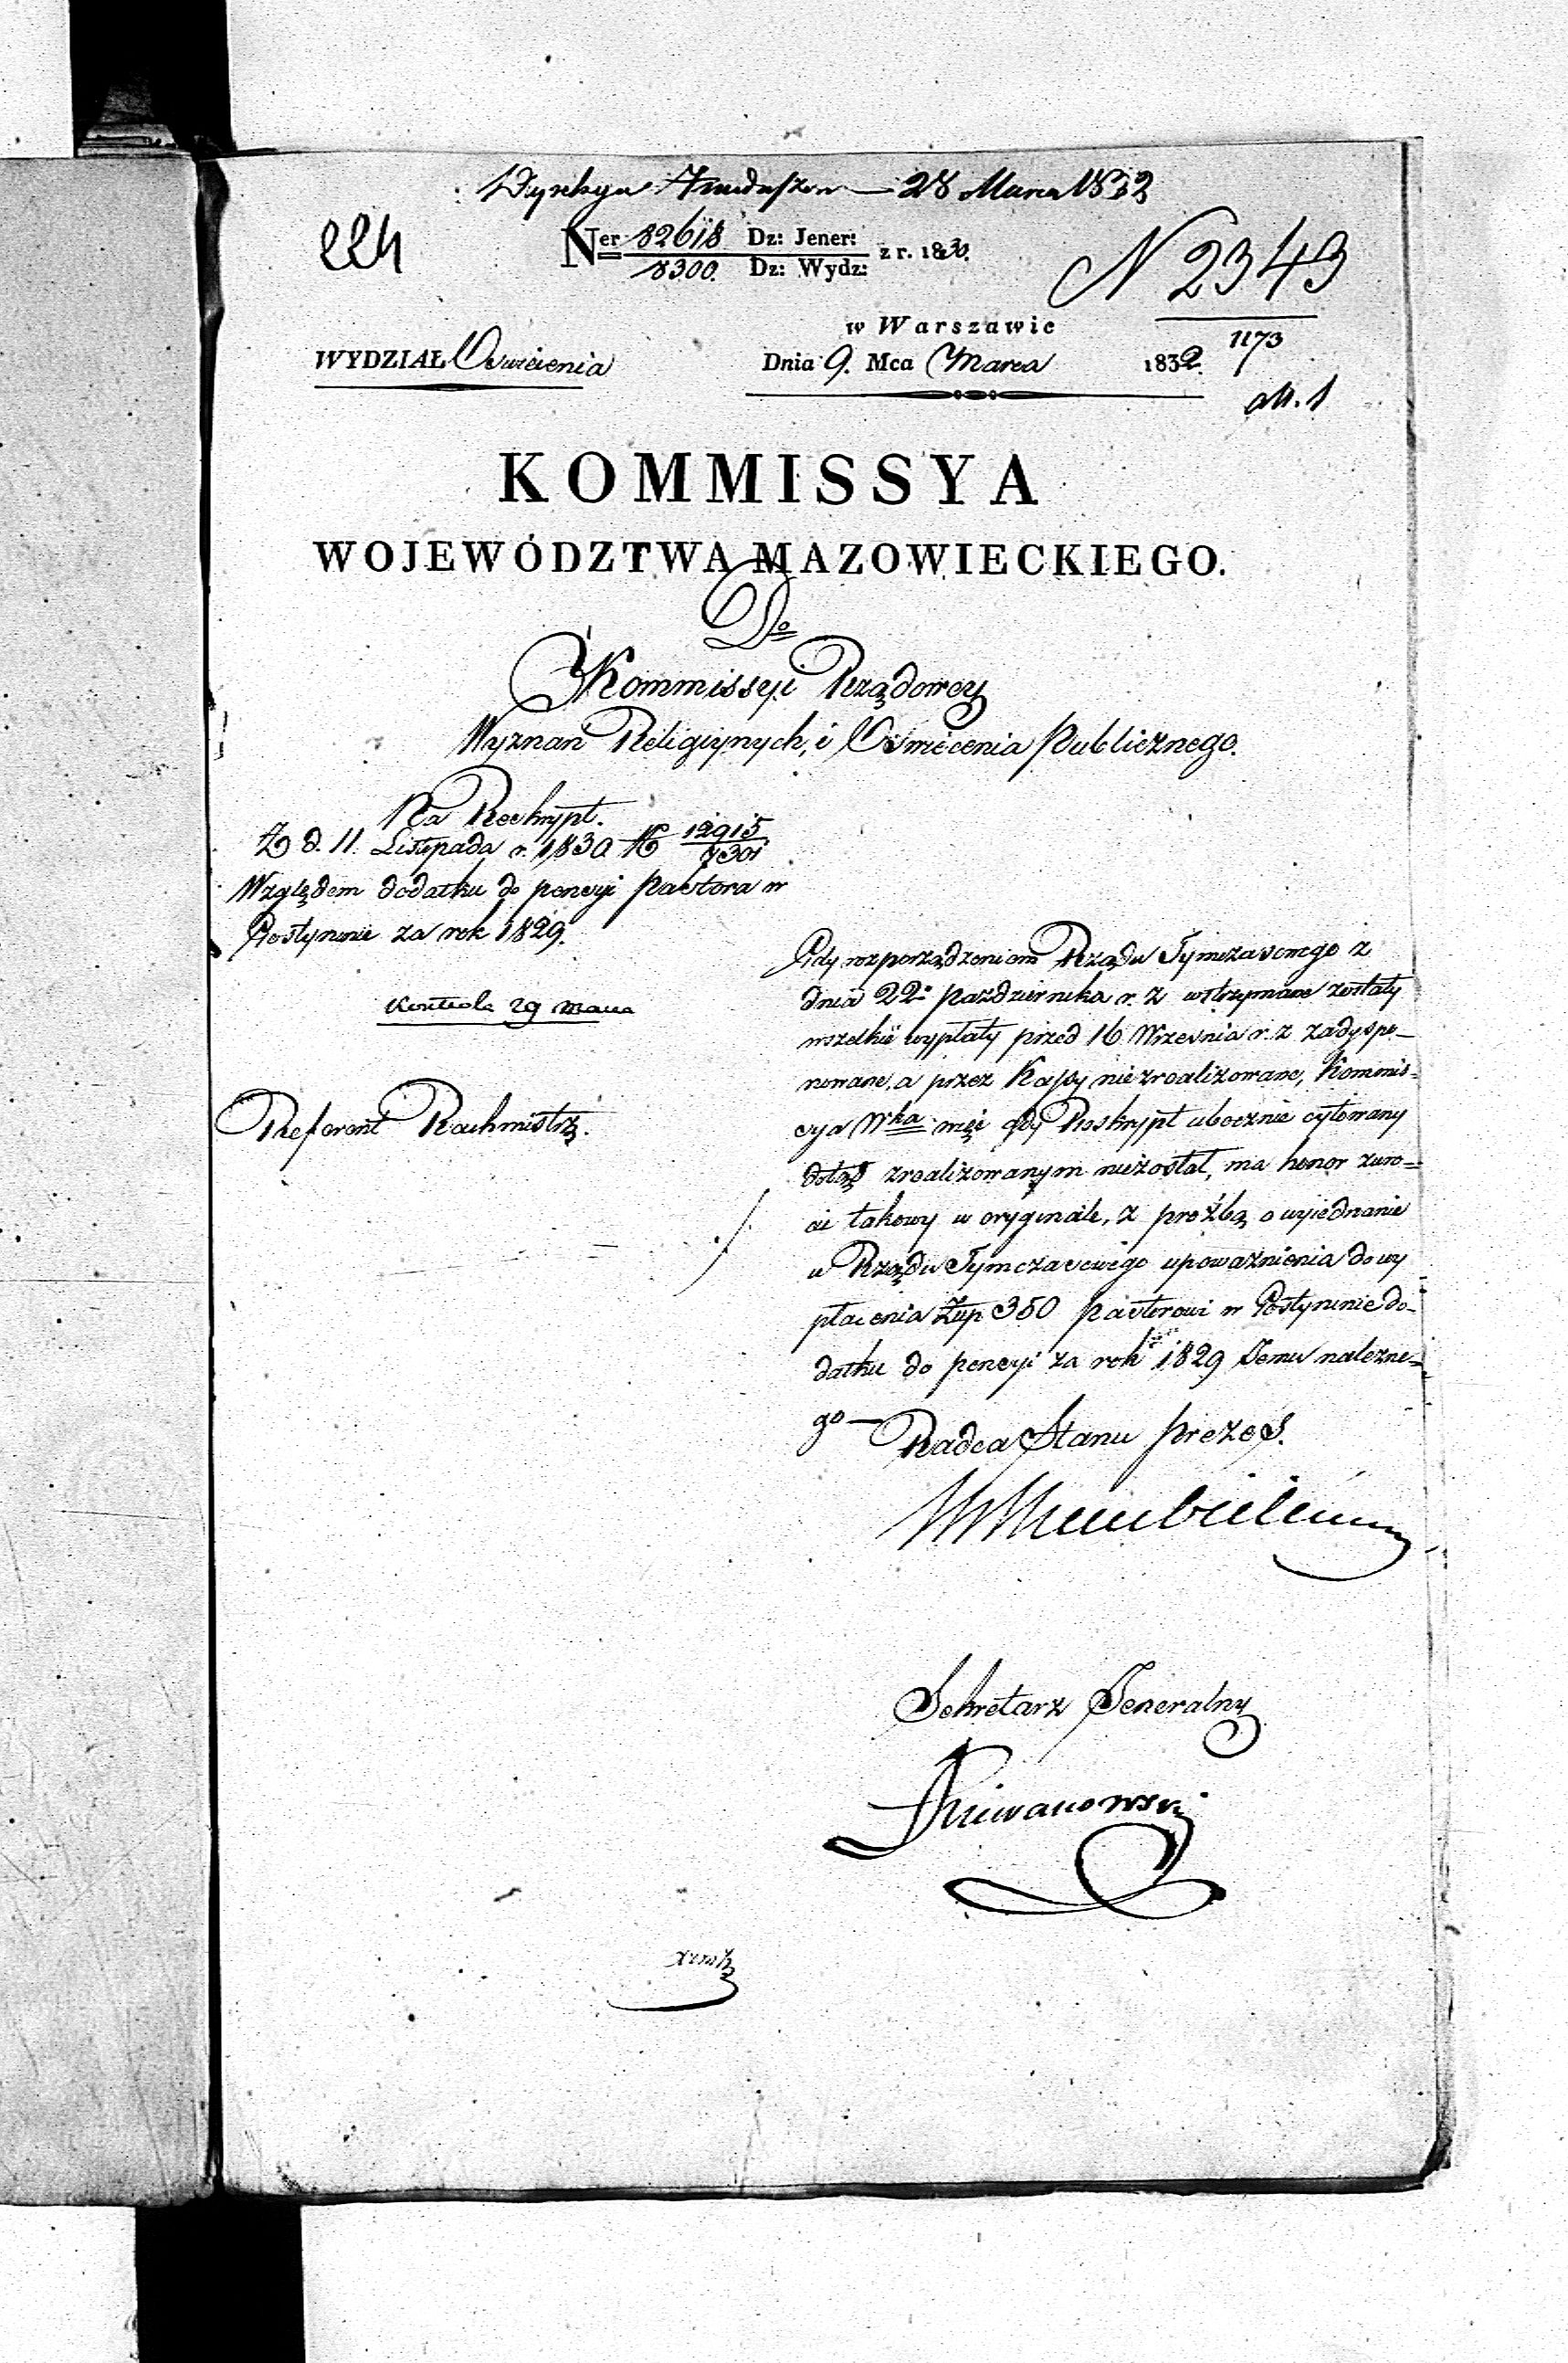 Dyrekcya Funduszów — 28 Marca 1832
224
Ner 82618 Dz: Jener: z r. 1830.
8300. Dz: Wydz:
N 2343
1173
w Warszawie
WYDZIAŁ Oświecenia
Dnia 9. Mca Marca 1832.
KOMMISSYA
WOJEWÓDZTWA MAZOWIECKIEGO.
Do
Kommissyi Rządowey
Wyznań Religiynych, i Oświecenia Publicznego.
Na Reskrypt.
Z d. 11. Listopada r. 1830 N 12915
7301
Względem dodatku do pensyi Pastora w
Gostyninie za rok 1829.
Kontrola 29 Marca
Referent Rachmistrz.
Gdy rozporządzeniem Rządu Tymczasowego z
dnia 22. Października r. z wstrzymane zostały
wszelkie wypłaty przed 16 Września r. z zadyspo-
nowane, a przez Kassy niezrealizowane, Kommis-
sya Wka więc gdy Reskrypt ubocznie cytowany
dotąd zrealizowanym niezostał, ma honor zwró-
cić takowy w oryginale, z proźbą o wyiednanie
u Rządu Tymczasowego upoważnienia do wy
płacenia Złp 350 Pastorowi w Gostyninie do-
datku do pensyi za rok 1829 Jemu należne-
go —
Radca Stanu Prezes.
Sekretarz Jeneralny